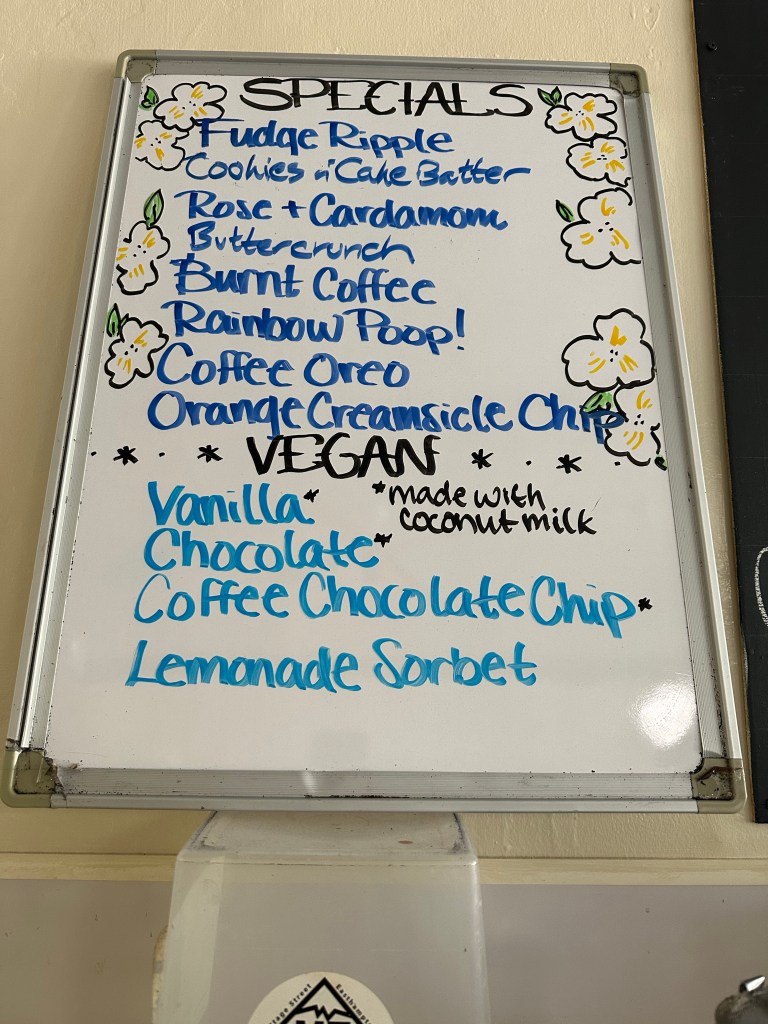 SPECIALS
Fudge Ripple
Cookies n' Cake Batter
Rose + Cardamom
Buttercrunch
Burnt Coffee
Rainbow Poop!
Coffee Oreo
Orange Creamsicle Chip
* . * VEGAN * . * .
Vanilla* *made with
coconut milk
Chocolate*
Coffee Chocolate Chip*
Lemonade Sorbet